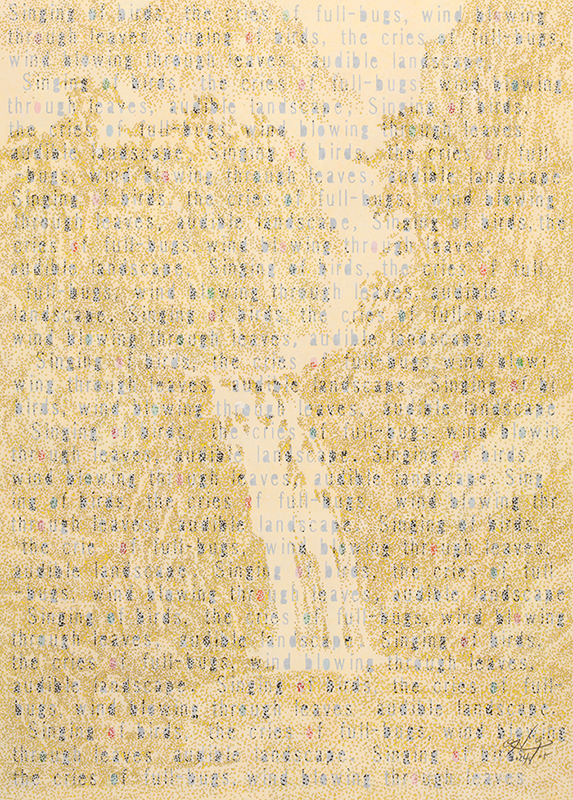 Singing of birds, the cries of full-bugs, wind blowing
through leaves Singing of birds, the cries of full-bugs,
wind blowing through leaves, audible landscape,
Singing of birds, the cries of full-bugs, wind blowing
through leaves, audible landscape, Singing of birds,
the cries of full-bugs, wind blowing through leaves
audible landscape, Singing of birds, the cries of full
-bugs, wind blowing through leaves, audible landscape
Singing of birds, the cries of full-bugs, wind blowing
through leaves, audible landscape, Singing of birds, the
cries of full-bugs, wind blowing through leaves,
audible landscape, Singing of birds, the cries of full
full-bugs, wind blowing through leaves, audible
landscape. Singing of birds, the cries of full-bugs,
wind blowing through leaves, audible landscape,
Singing of birds, the cries of full-bugs, wind blowi
wing through leaves, audible landscape, Singing of bi
birds, wind blowing through leaves, audible landscape
Singing of birds, the cries of full-bugs, wind blowin
through leaves, audible landscape, Singing of birds,
wind blowing through leaves, audible landscape. Sing
ing of birds, the cries of full-bugs, wind blowing thr
through leaves, audible landscape, Singing of birds,
the cries of full-bugs, wind blowing through leaves,
audible landscape, Singing of birds, the cries of full
-bugs, wind blowing through leaves, audible landscape
Singing of birds, the cries of full-bugs, wind blowing
through leaves, audible landscape, Singing of birds,
the cries of full-bugs, wind blowing through leaves,
audible landscape. Singing of birds, the cries of full-
bugs, wind blowing through leaves audible landscape.
Singing of birds, the cries of full-bugs, wind blowing
through leaves, audible landscape, Singing of b
the cries of full-bugs, wind blowing through leaves